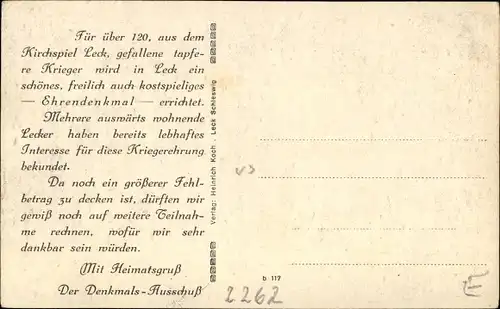 Für über 120, aus dem
Kirchspiel Leck, gefallene tapfe-
re Krieger wird in Leck ein
schönes, freilich auch kostspieliges
— Ehrendenkmal — errichtet.
Mehrere auswärts wohnende
Lecker haben bereits lebhaftes
Interesse für diese Kriegerehrung
bekundet.
Da noch ein größerer Fehl-
betrag zu decken ist, dürften wir
gewiß noch auf weitere Teilnah-
me rechnen, wofür wir sehr
dankbar sein würden.
Mit Heimatsgruß
Der Denkmals-Ausschuß
Verlag: Heinrich Koch, Leck Schleswig
b 117
2262
E